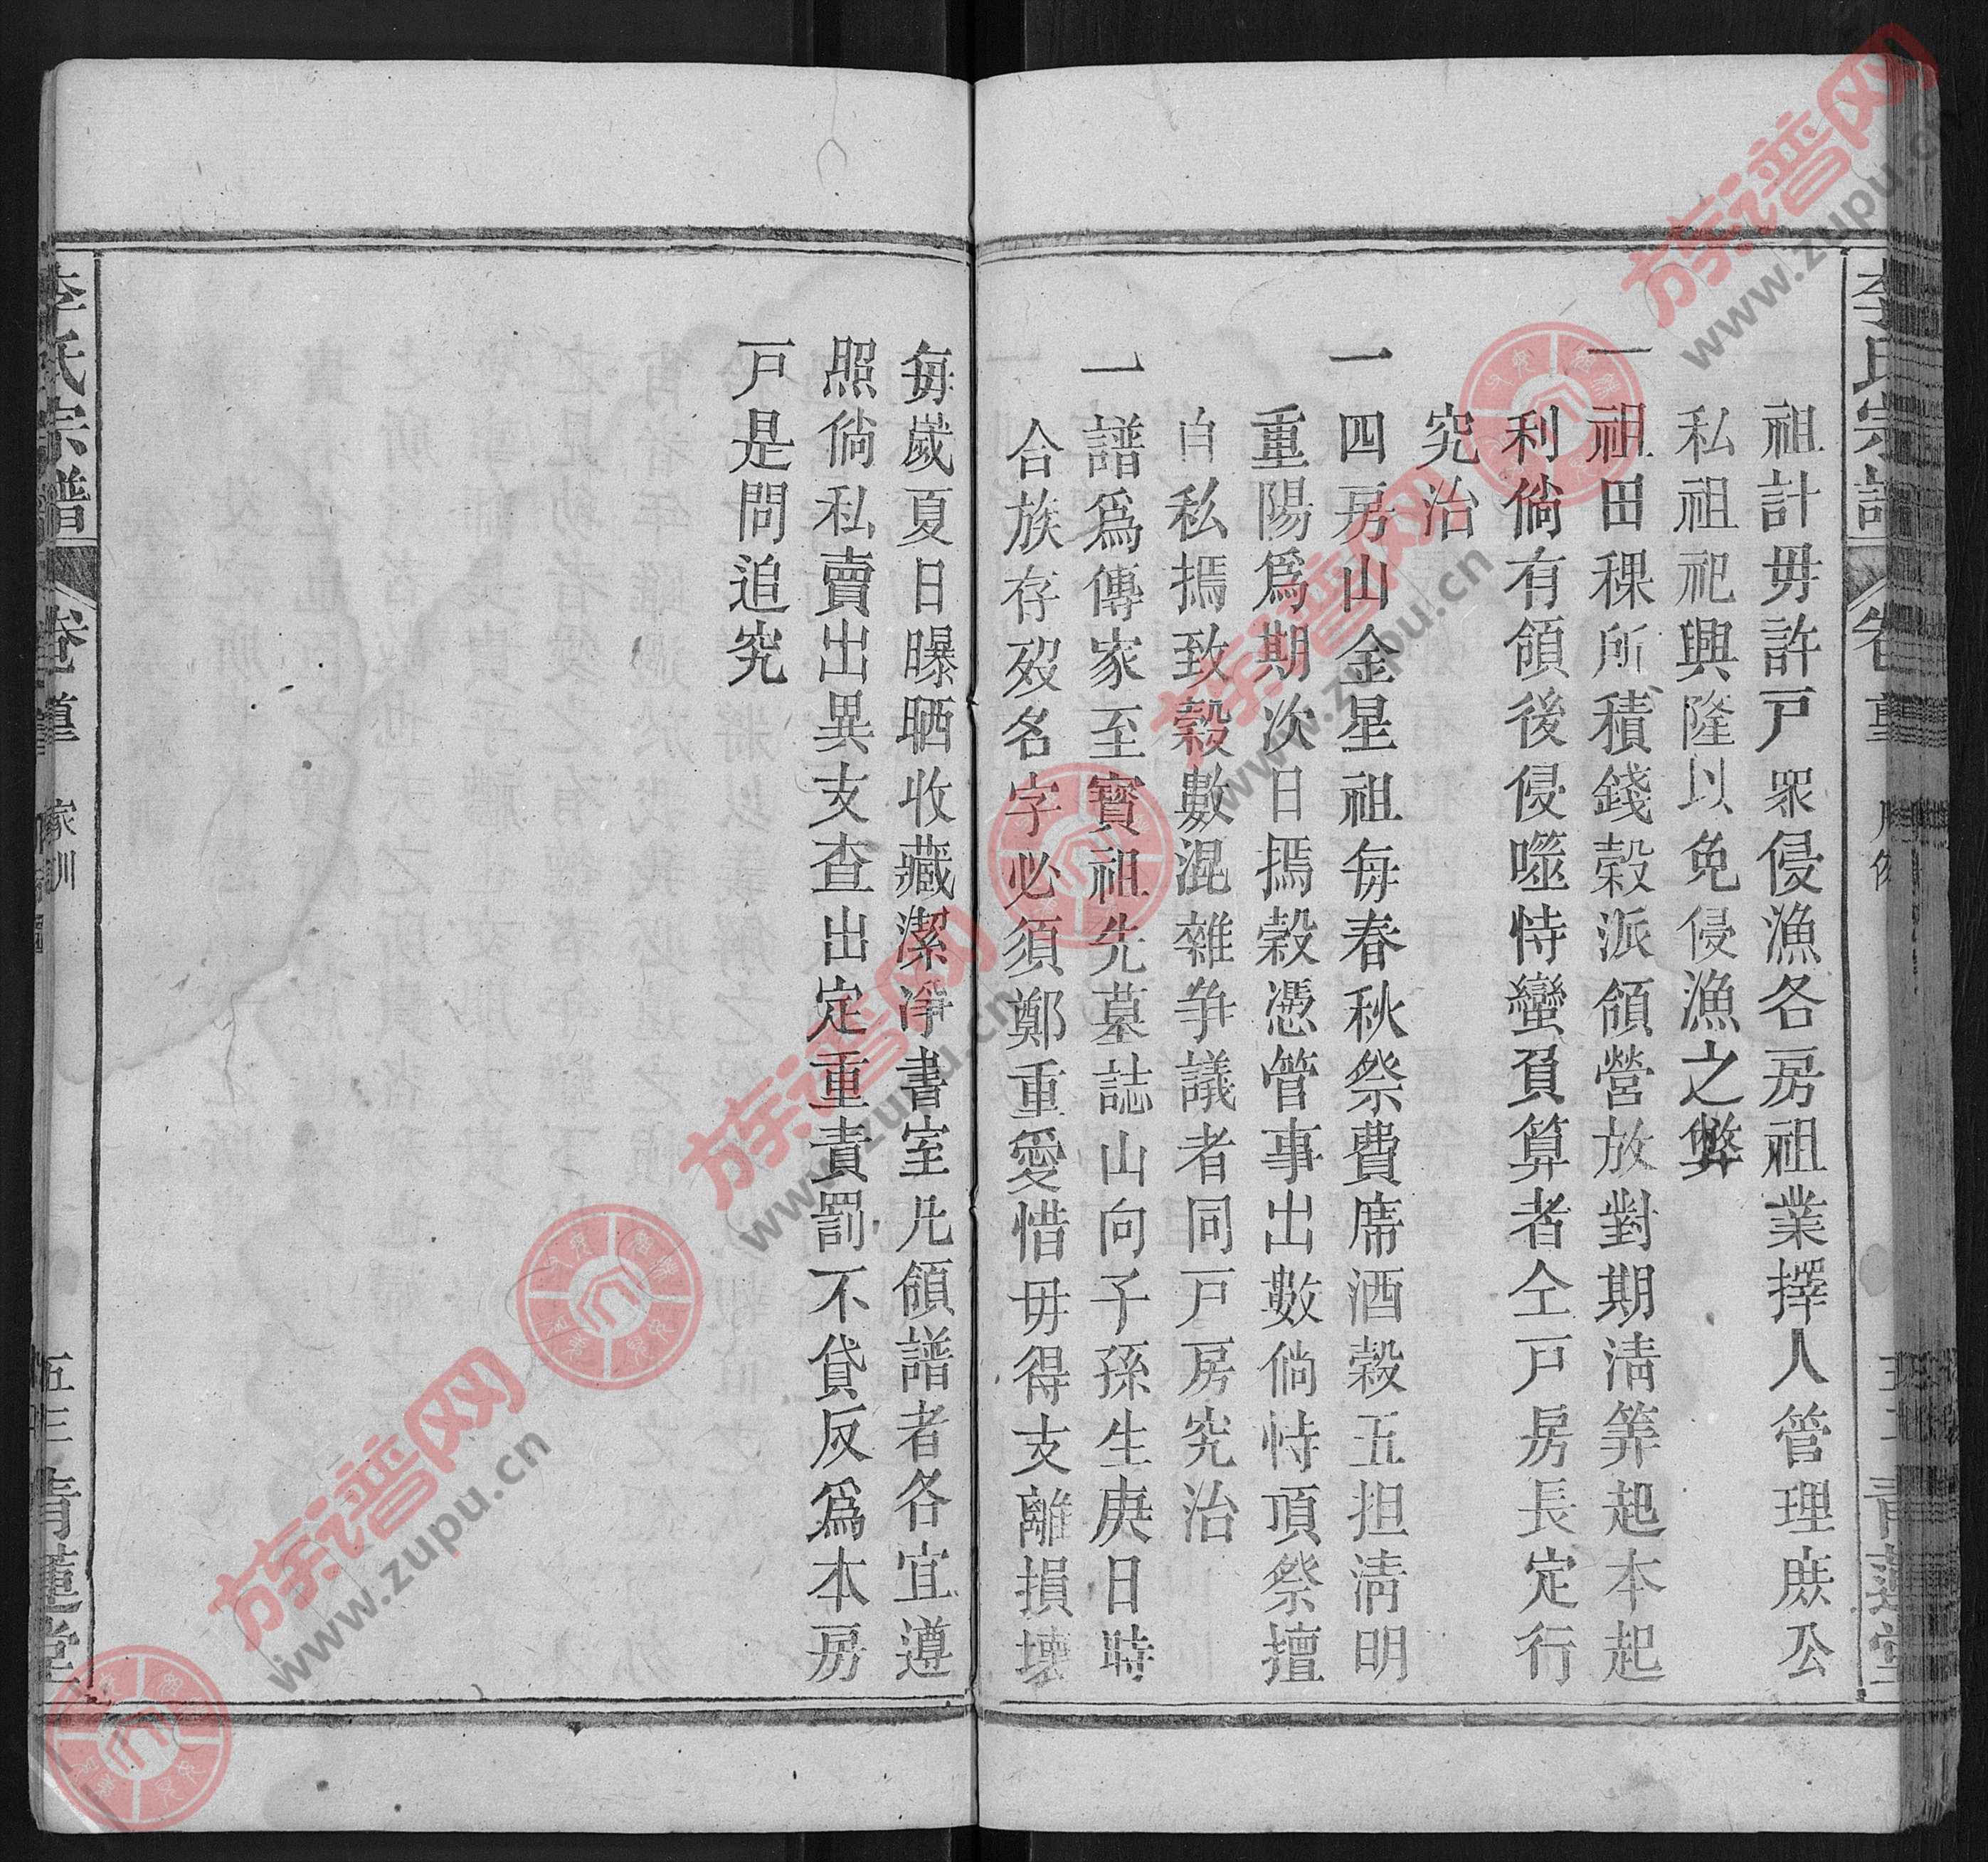 祖計毋許戸眾侵漁各房祖業擇人管理庶公
私祖祀興隆以免侵漁之弊
一祖田稞所積錢穀派領營放對期清筭起本起
利倘有領後侵噬恃蠻負算者仝戸房長定行
究治
一四房山金星祖每春秋祭費席酒穀五担清明
重陽爲期次日搗穀憑管事出數倘恃頂祭擅
自私搗致穀數混雜争議者同戸房究治
一譜爲傳家至寳祖先墓誌山向子孫生庚日時
合族存殁名字必須鄭重愛惜毋得支離損壞
每嵗夏日曝晒收藏潔淨書室凡領譜者各宜遵
照倘私賣出異支查出定重責罰不貸反爲本房
戸是問追究
李氏宗譜
家訓
五三 青蓮堂
族谱网
www.zupu.cn
族谱网
www.zupu.cn
族谱网
www.zupu.cn
族谱网
www.zupu.cn